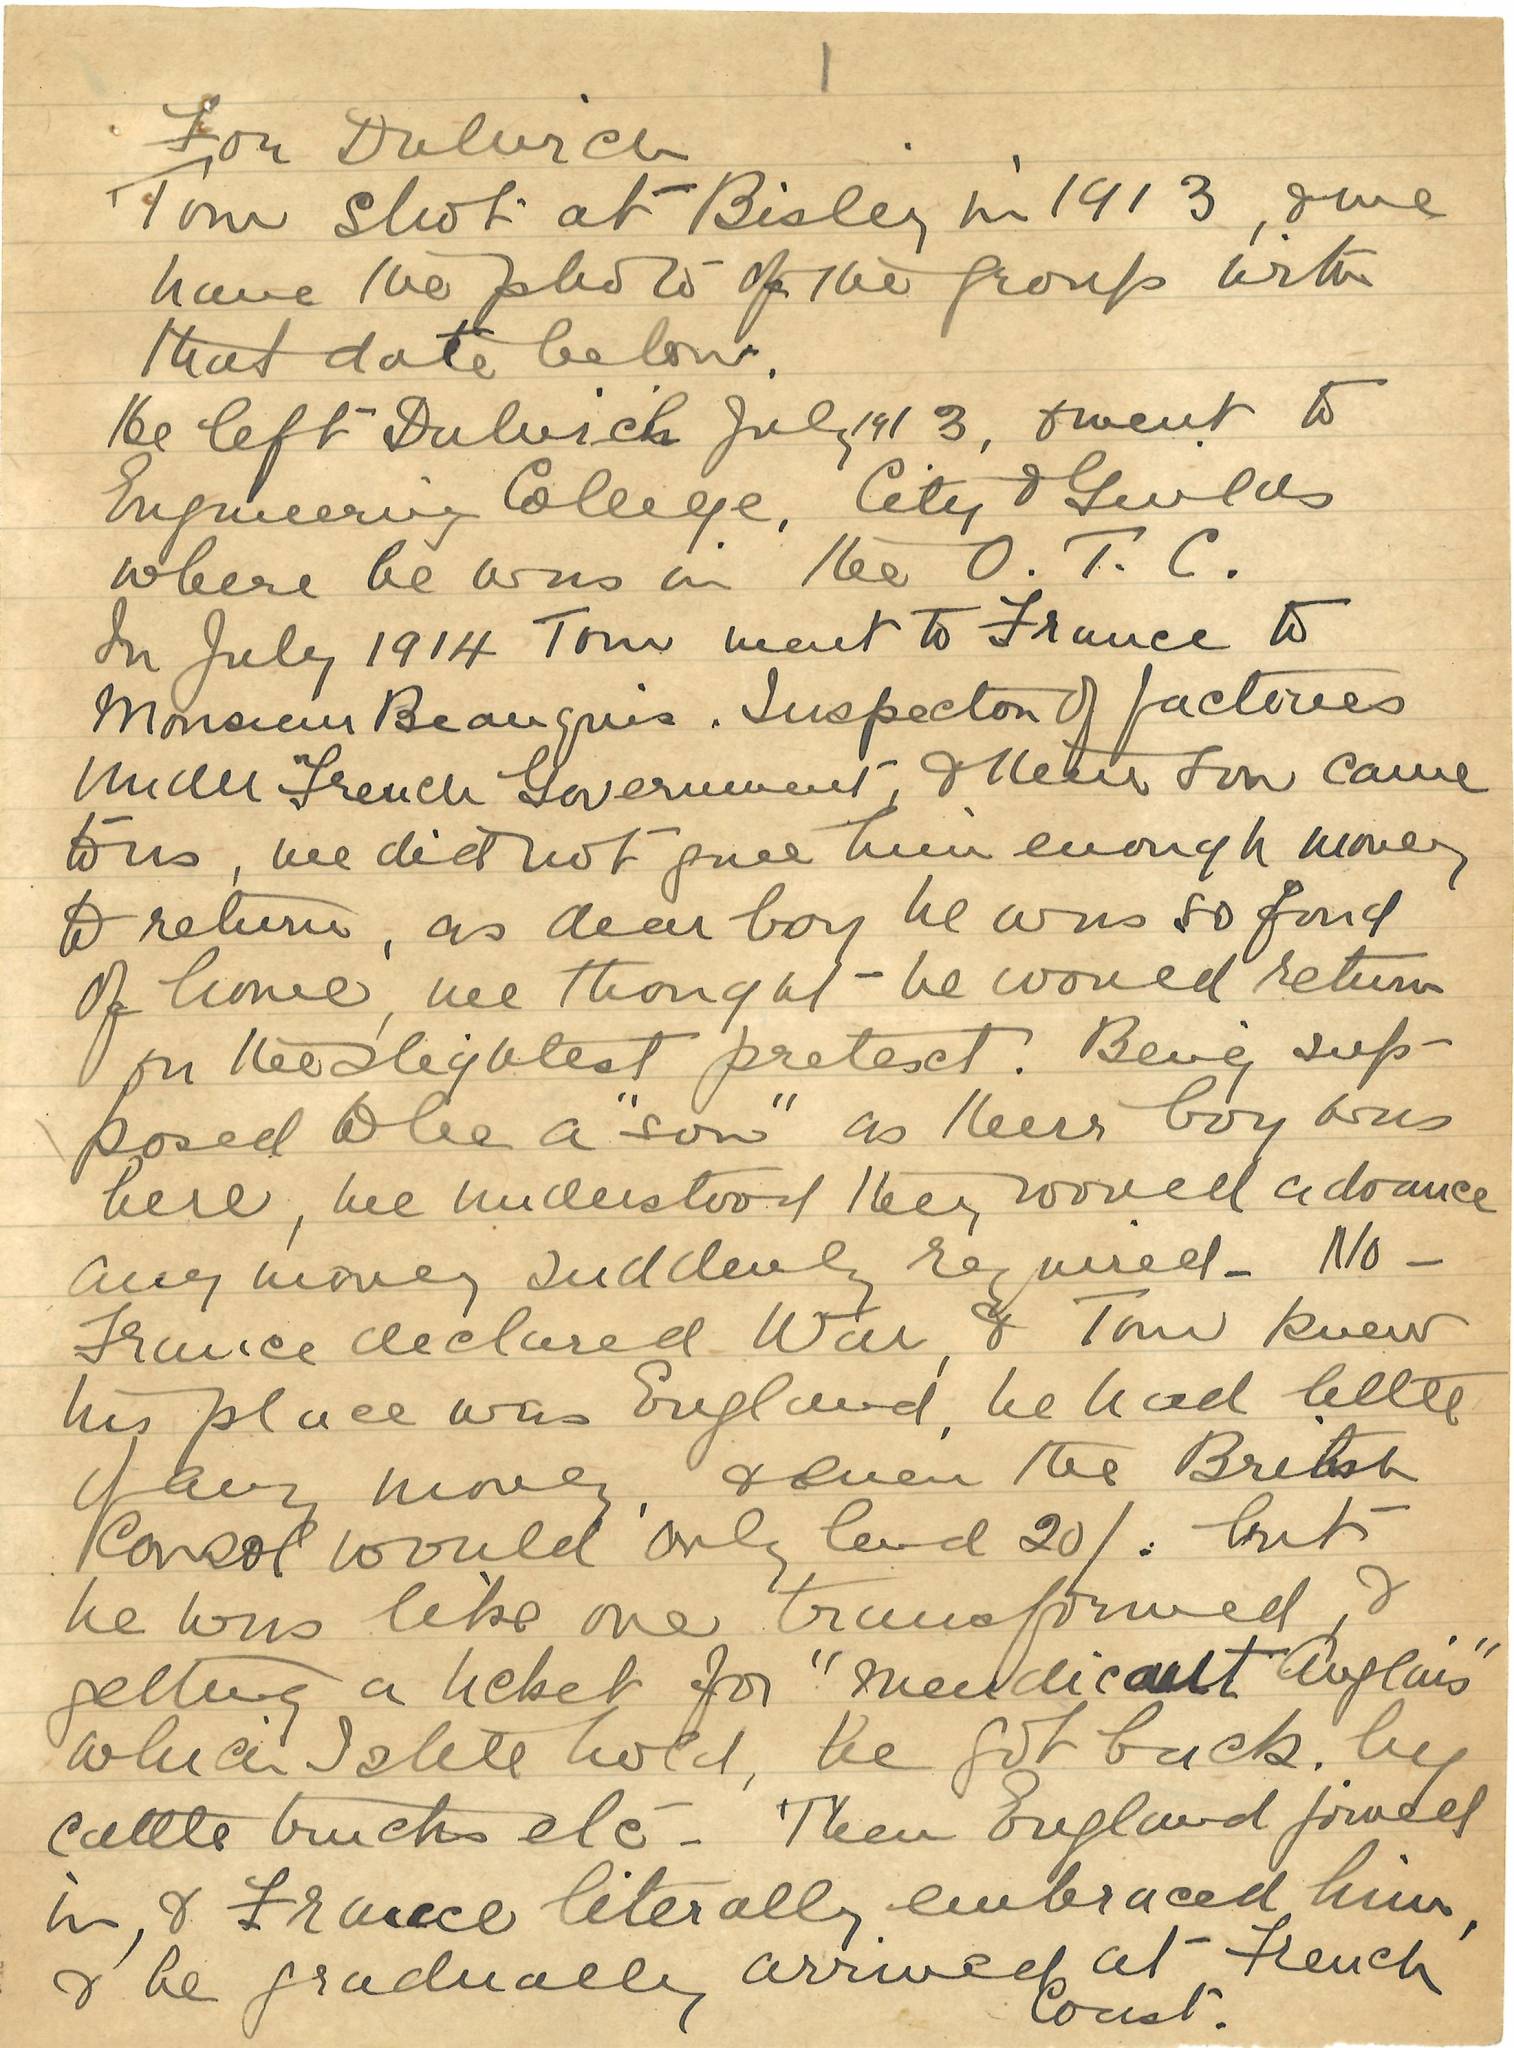 1
For Dulwich
Tom shot at Bisley in 1913, & we
have the photo of the group with
that date below.
He left Dulwich July 1913, & went to
Engineering College, City & Guilds
where he was in the O. T. C.
In July 1914 Tom went to France to
Monsieur Beauquis. Inspector of factories
under French Government, & their son came
to us, we did not give him enough money
to return, as dear boy he was so fond
of home, we thought he would return
on the slightest pretext. Being sup-
posed to be a "son" as their boy was
here, we understood they would advance
any money suddenly required - No -
France declared War, & Tom knew
his place was England, he had little
if any money, & even the British
Consol would only lend 20/. but
he was like one transformed, &
getting a ticket for "mendicant Anglais"
which I still hold, he got back. by
cattle trucks etc - Then England joined
in, & France literally embraced him,
& he gradually arrived at French
Coast.